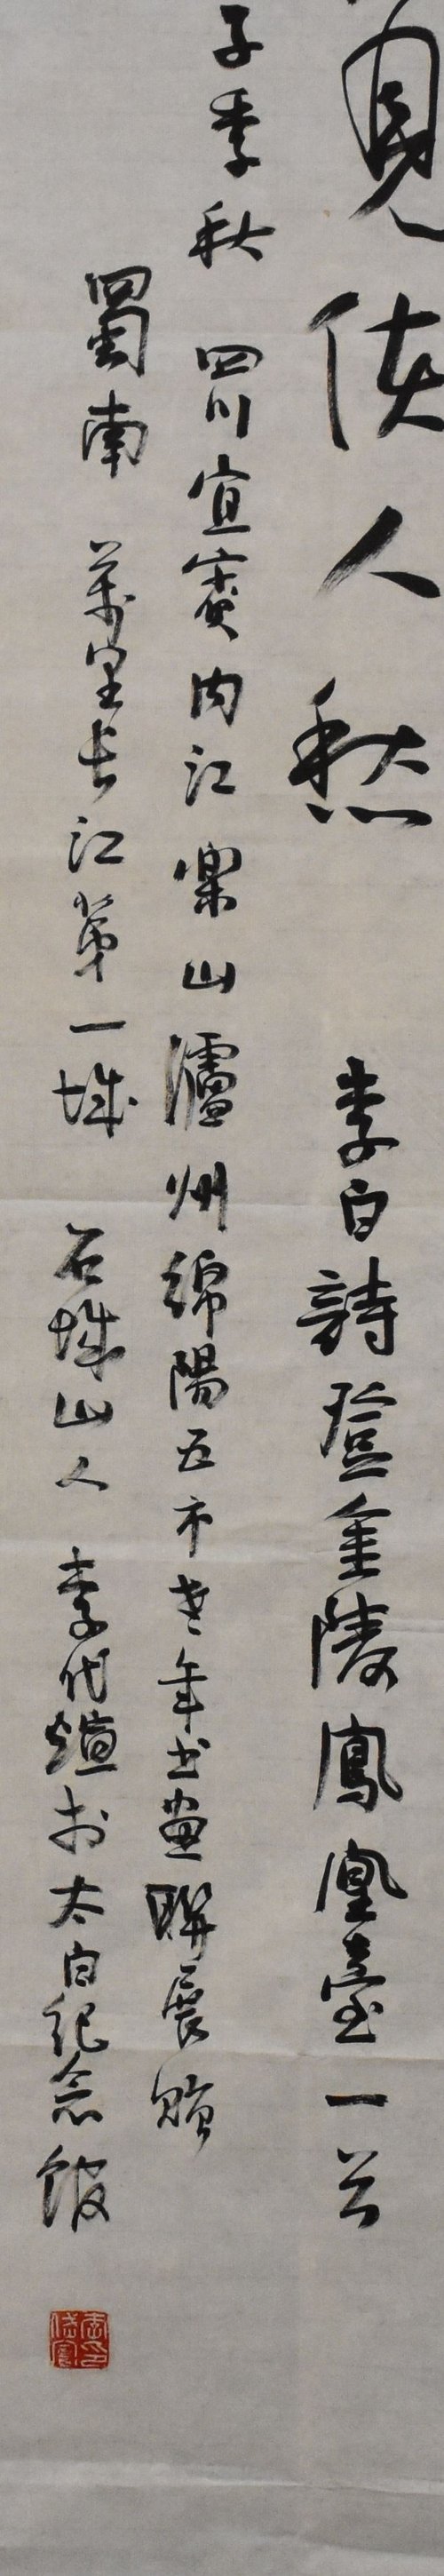 見使人愁 李白詩登金陵鳳凰臺一首
子季秋 四川宜賓内江樂山瀘州綿陽五市老年书画聯展贈
蜀南 萬里长江第一城 石城山人 李代煊於太白纪念館